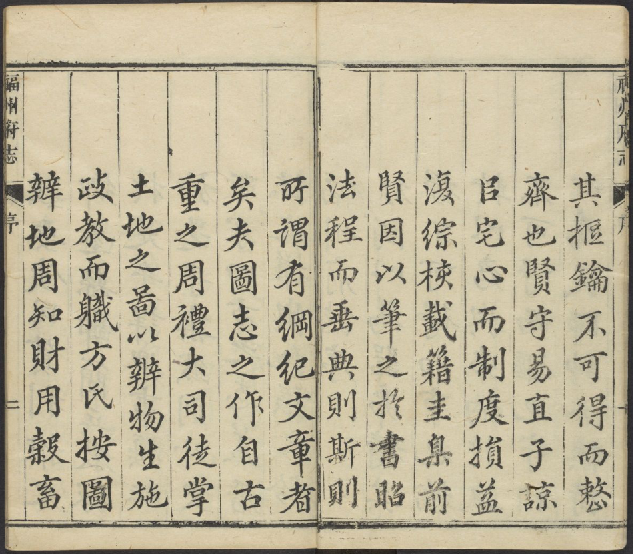 福州府志
其樞鑰不可得而憗
齊也賢守易直子諒
㠯宅心而制度損益
湏綜核載籍圭臬前
賢因以筆之於書昭
法程而垂典則斯則
所謂有綱紀文章者
矣夫圖志之作自古
重之周禮大司徒掌
土地之啚以辨物生施
政教而職方氏按圖
辨地周知財用榖畜
福州府志
序
二